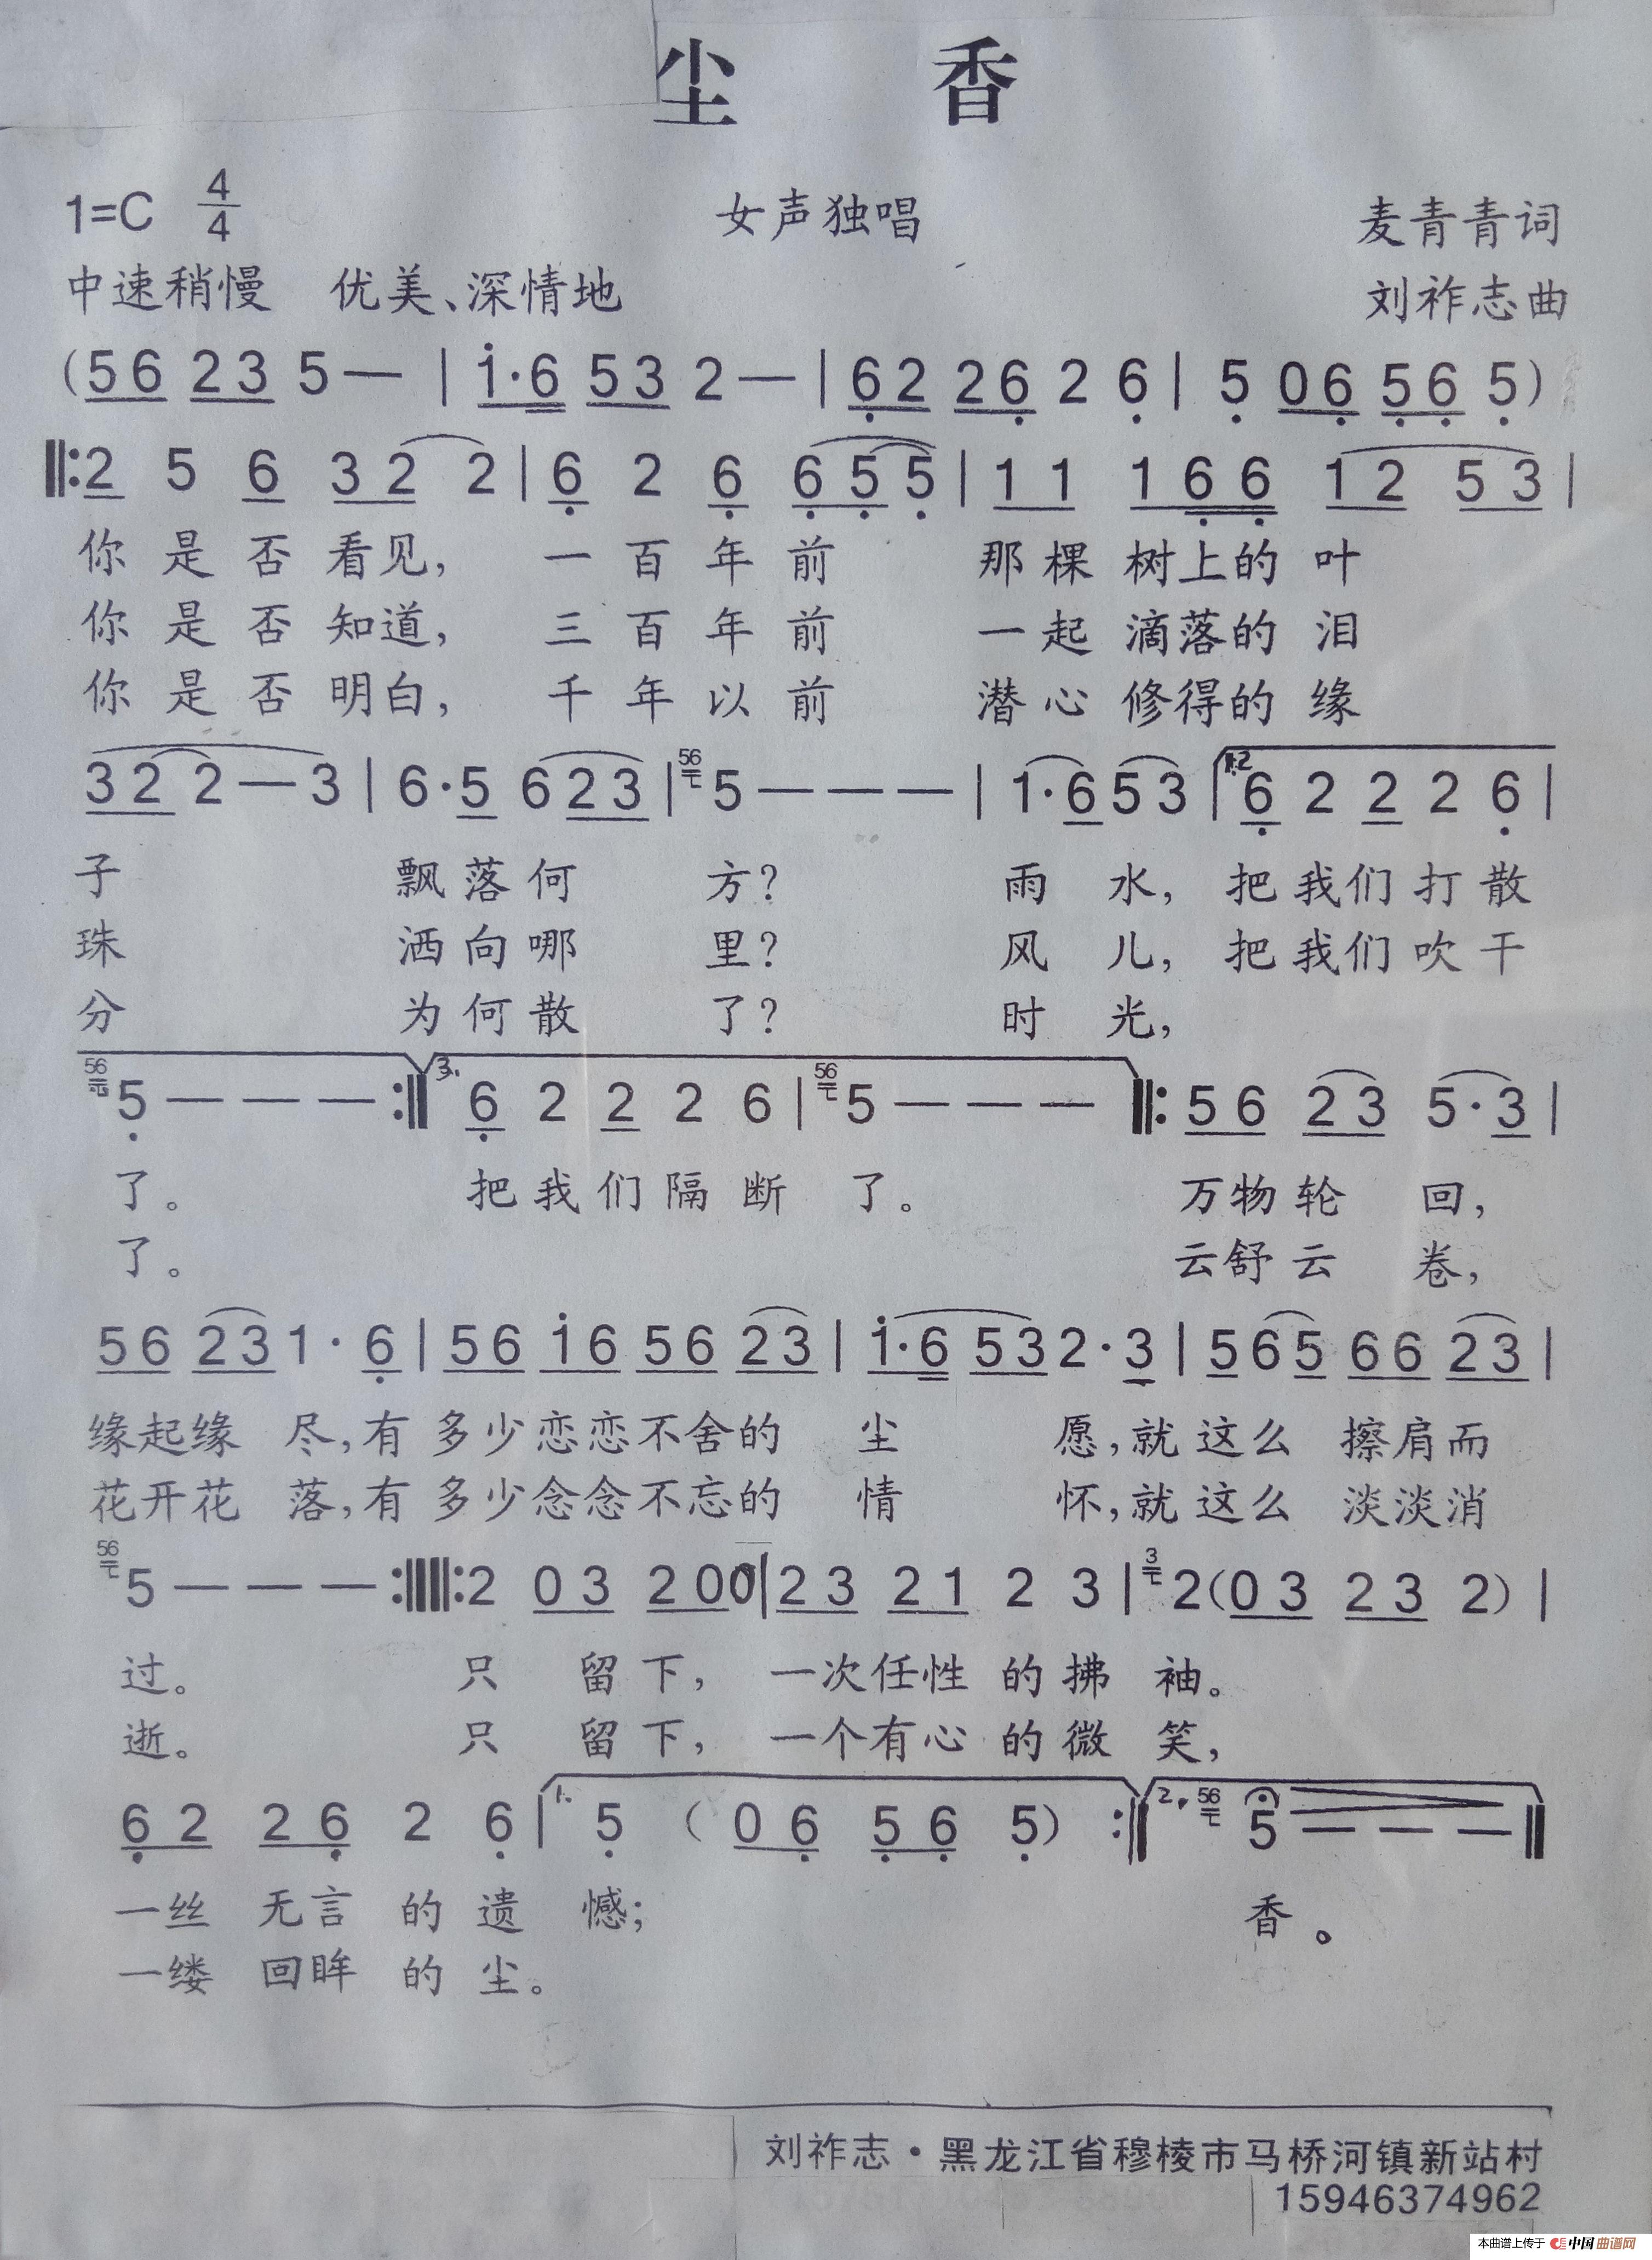 尘 香
1=C 4/4 女声独唱 麦青青词
中速稍慢 优美、深情地 刘祚志曲
(56 23 5— | 1·6 53 2— | 62 26 2 6 | 5 06 56 5)
‖:2 5 6 32 2 | 6 2 6 65 5 | 11 166 12 53 |
你是否看见, 一百年前 那棵树上的叶
你是否知道, 三百年前 一起滴落的泪
你是否明白, 千年以前 潜心修得的缘
32 2—3 | 6·5 623 | 56 5——— | 1·6 53 | 1.2 6 2 2 2 6 |
子 飘落何 方? 雨 水, 把我们打散
珠 洒向哪 里? 风 儿, 把我们吹干
分 为何散 了? 时 光,
56 5———:‖ 3. 6 2 2 2 6 | 56 5——— ‖: 56 23 5·3 |
了。 把我们隔断 了。 万物轮 回,
了。 云舒云 卷,
56 23 1·6 | 56 16 56 23 | 1·6 53 2·3 | 565 66 23 |
缘起缘 尽,有 多少恋恋不舍的 尘 愿,就这么 擦肩而
花开花 落,有 多少念念不忘的 情 怀,就这么 淡淡消
56 5———:‖‖:2 03 20 0 | 23 21 2 3 | 3 2(03 23 2) |
过。 只 留下, 一次任性 的拂 袖。
逝。 只 留下, 一个有心 的微 笑,
62 26 2 6 | 1. 5 (06 56 5) :‖ 2. 56 5——— ‖
一丝 无言 的 遗 憾; 香。
一缕 回眸 的 尘。
刘祚志·黑龙江省穆棱市马桥河镇新站村
15946374962
本曲谱上传于 中国曲谱网